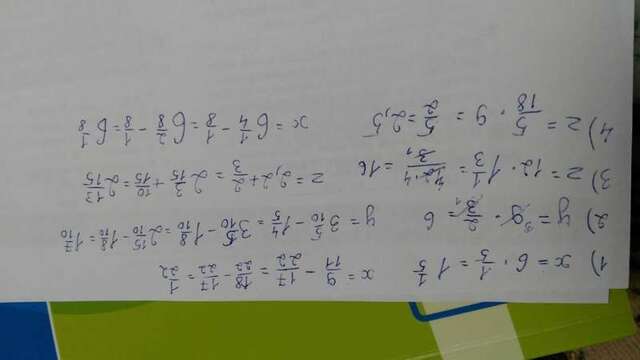 1) x = 6 · 1/5 = 1 1/5    x = 9/11 - 17/22 = 18/22 - 17/22 = 1/22
2) y = 9 · 2/3 = 6    y = 3 5/10 - 1 4/5 = 3 5/10 - 1 8/10 = 2 15/10 - 1 8/10 = 1 7/10
3) z = 12 · 1 1/3 = 12·4/3 = 16    z = 2,2 + 2/3 = 2 3/15 + 10/15 = 2 13/15
4) z = 5/18 · 9 = 5/2 = 2,5    x = 6 1/4 - 1/8 = 6 2/8 - 1/8 = 6 1/8